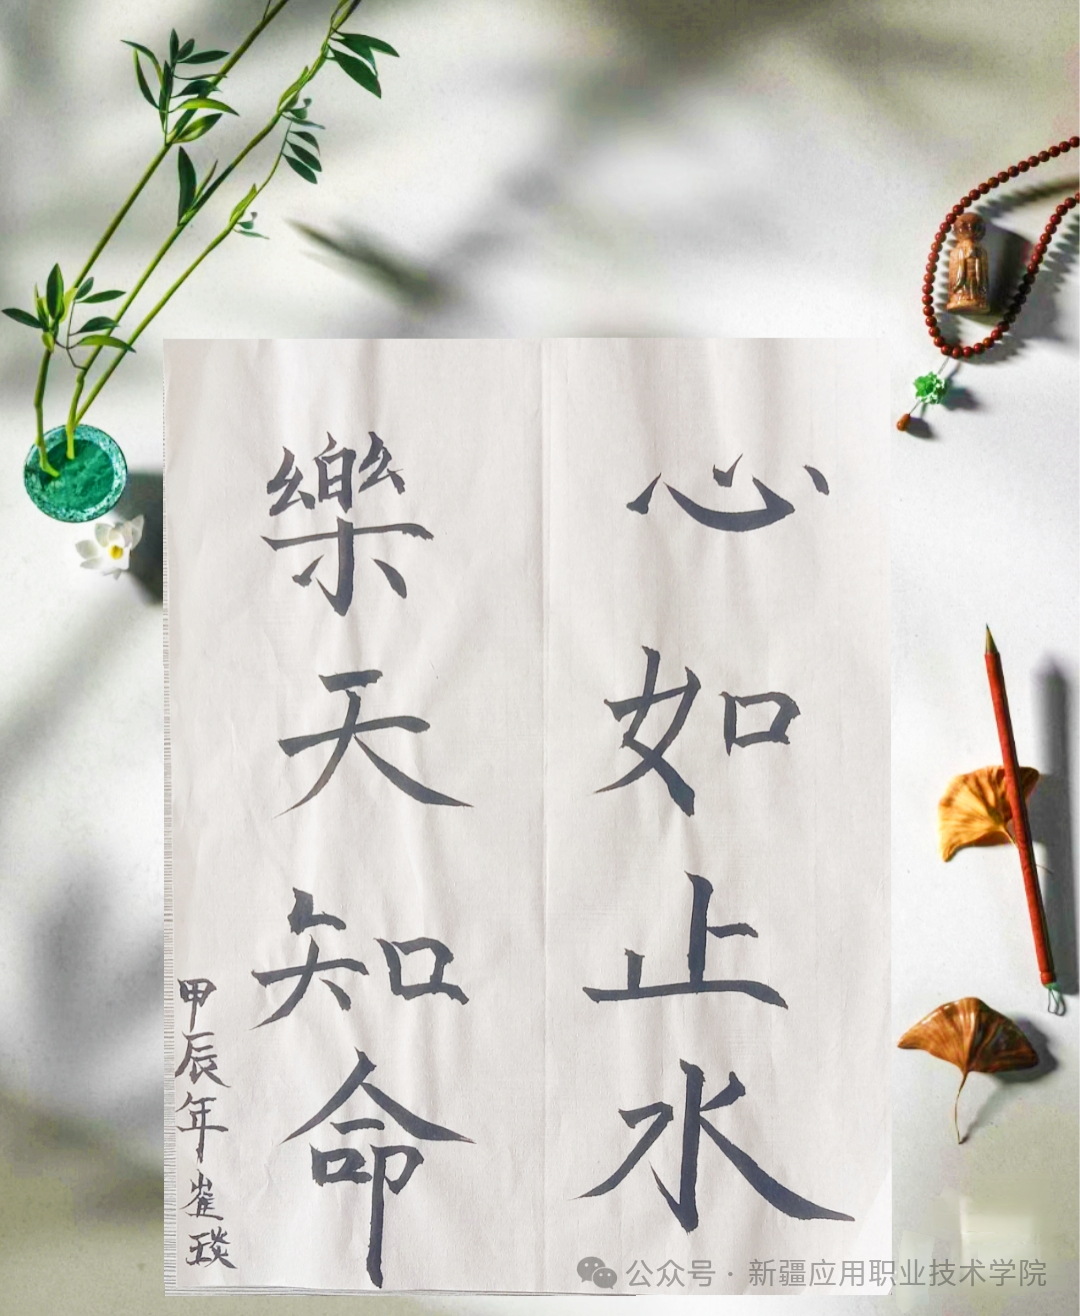 心如止水
樂天知命
甲辰年崔琰
公众号 · 新疆应用职业技术学院